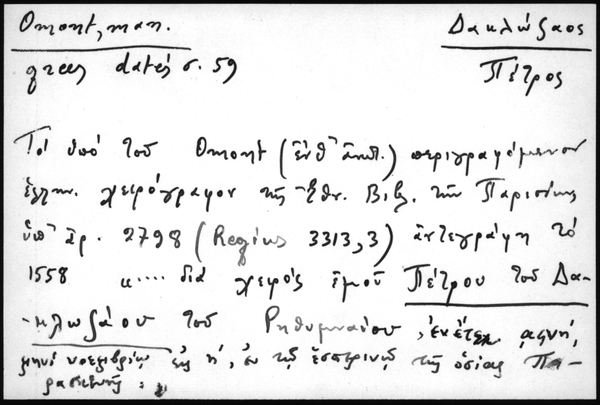 Omont, man. Δακλώζαος
grecs datés σ. 59 Πέτρος
Τό ὑπό τοῦ Omont (ἐνθ' ἀνωτ.) περιγραφόμενον
ἑλλην. χειρόγραφον τῆς Ἐθν. Βιβλ. τῶν Παρισίων
ὑπ' ἀρ. 2798 (Regius 3313,3) ἀντεγράφη τό
1558 «.... διά χειρός ἐμοῦ Πέτρου τοῦ Δα-
-κλωζάου τοῦ Ῥηθυμναίου, ἐν ἔτει ͵αφνη,
μηνί νοεμβρίῳ εἰς η', ἐν τῷ ἑσπερινῷ τῆς ὁσίας Πα-
ρασκευῆς: